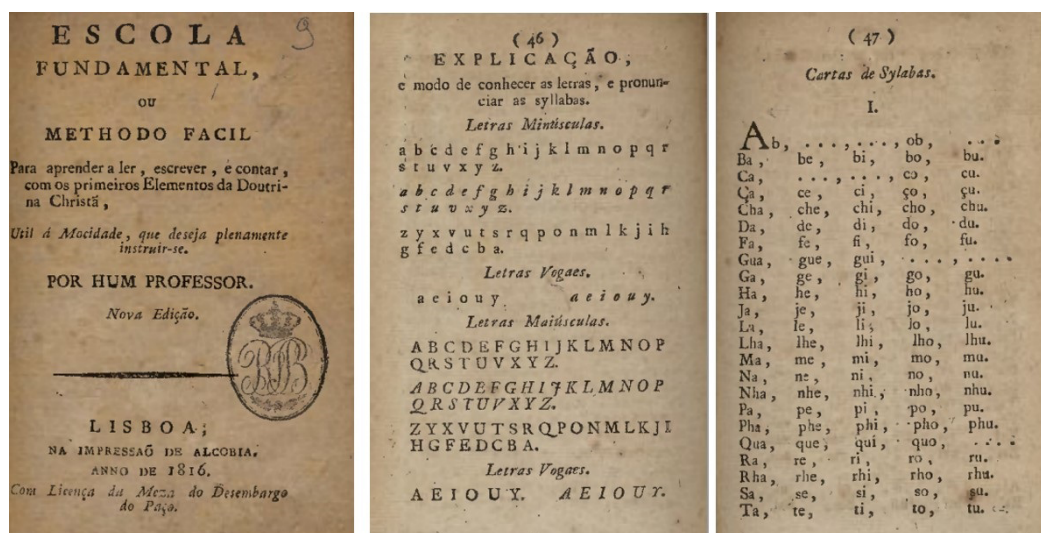 9
ESCOLA
FUNDAMENTAL,
OU
METHODO FACIL
Para aprender a ler, escrever, e contar,
com os primeiros Elementos da Doutri-
na Christã,
Util á Mocidade, que deseja plenamente
instruir-se.
POR HUM PROFESSOR.
Nova Edição.
LISBOA;
NA IMPRESSAÕ DE ALCOBIA.
ANNO DE 1816.
Com Licença da Meza do Desembargo
do Paço.
( 46 )
EXPLICAÇÃO,
e modo de conhecer as letras, e pronun-
ciar as syllabas.
Letras Minúsculas.
a b c d e f g h i j k l m n o p q r
s t u v x y z.
a b c d e f g h i j k l m n o p q r
s t u v x y z.
z y x v u t s r q p o n m l k j i h
g f e d c b a.
Letras Vogaes.
a e i o u y a e i o u y.
Letras Maiúsculas.
A B C D E F G H I J K L M N O P
Q R S T U V X Y Z.
A B C D E F G H I J K L M N O P
Q R S T U V X Y Z.
Z Y X V U T S R Q P O N M L K J I
H G F E D C B A.
Letras Vogaes.
A E I O U Y. A E I O U Y.
( 47 )
Cartas de Sylabas.
I.
Ab, . . . , . . . , ob, . . .
Ba, be, bi, bo, bu.
Ca, . . . , . . . , co, cu.
Ça, ce, ci, ço, çu.
Cha, che, chi, cho, chu.
Da, de, di, do, du.
Fa, fe, fi, fo, fu.
Gua, gue, gui, . . . , . . . .
Ga, ge, gi, go, gu.
Ha, he, hi, ho, hu.
Ja, je, ji, jo, ju.
La, le, li, lo, lu.
Lha, lhe, lhi, lho, lhu.
Ma, me, mi, mo, mu.
Na, ne, ni, no, nu.
Nha, nhe, nhi, nho, nhu.
Pa, pe, pi, po, pu.
Pha, phe, phi, pho, phu.
Qua, que, qui, quo, . . . .
Ra, re, ri, ro, ru.
Rha, rhe, rhi, rho, rhu.
Sa, se, si, so, su.
Ta, te, ti, to, tu.